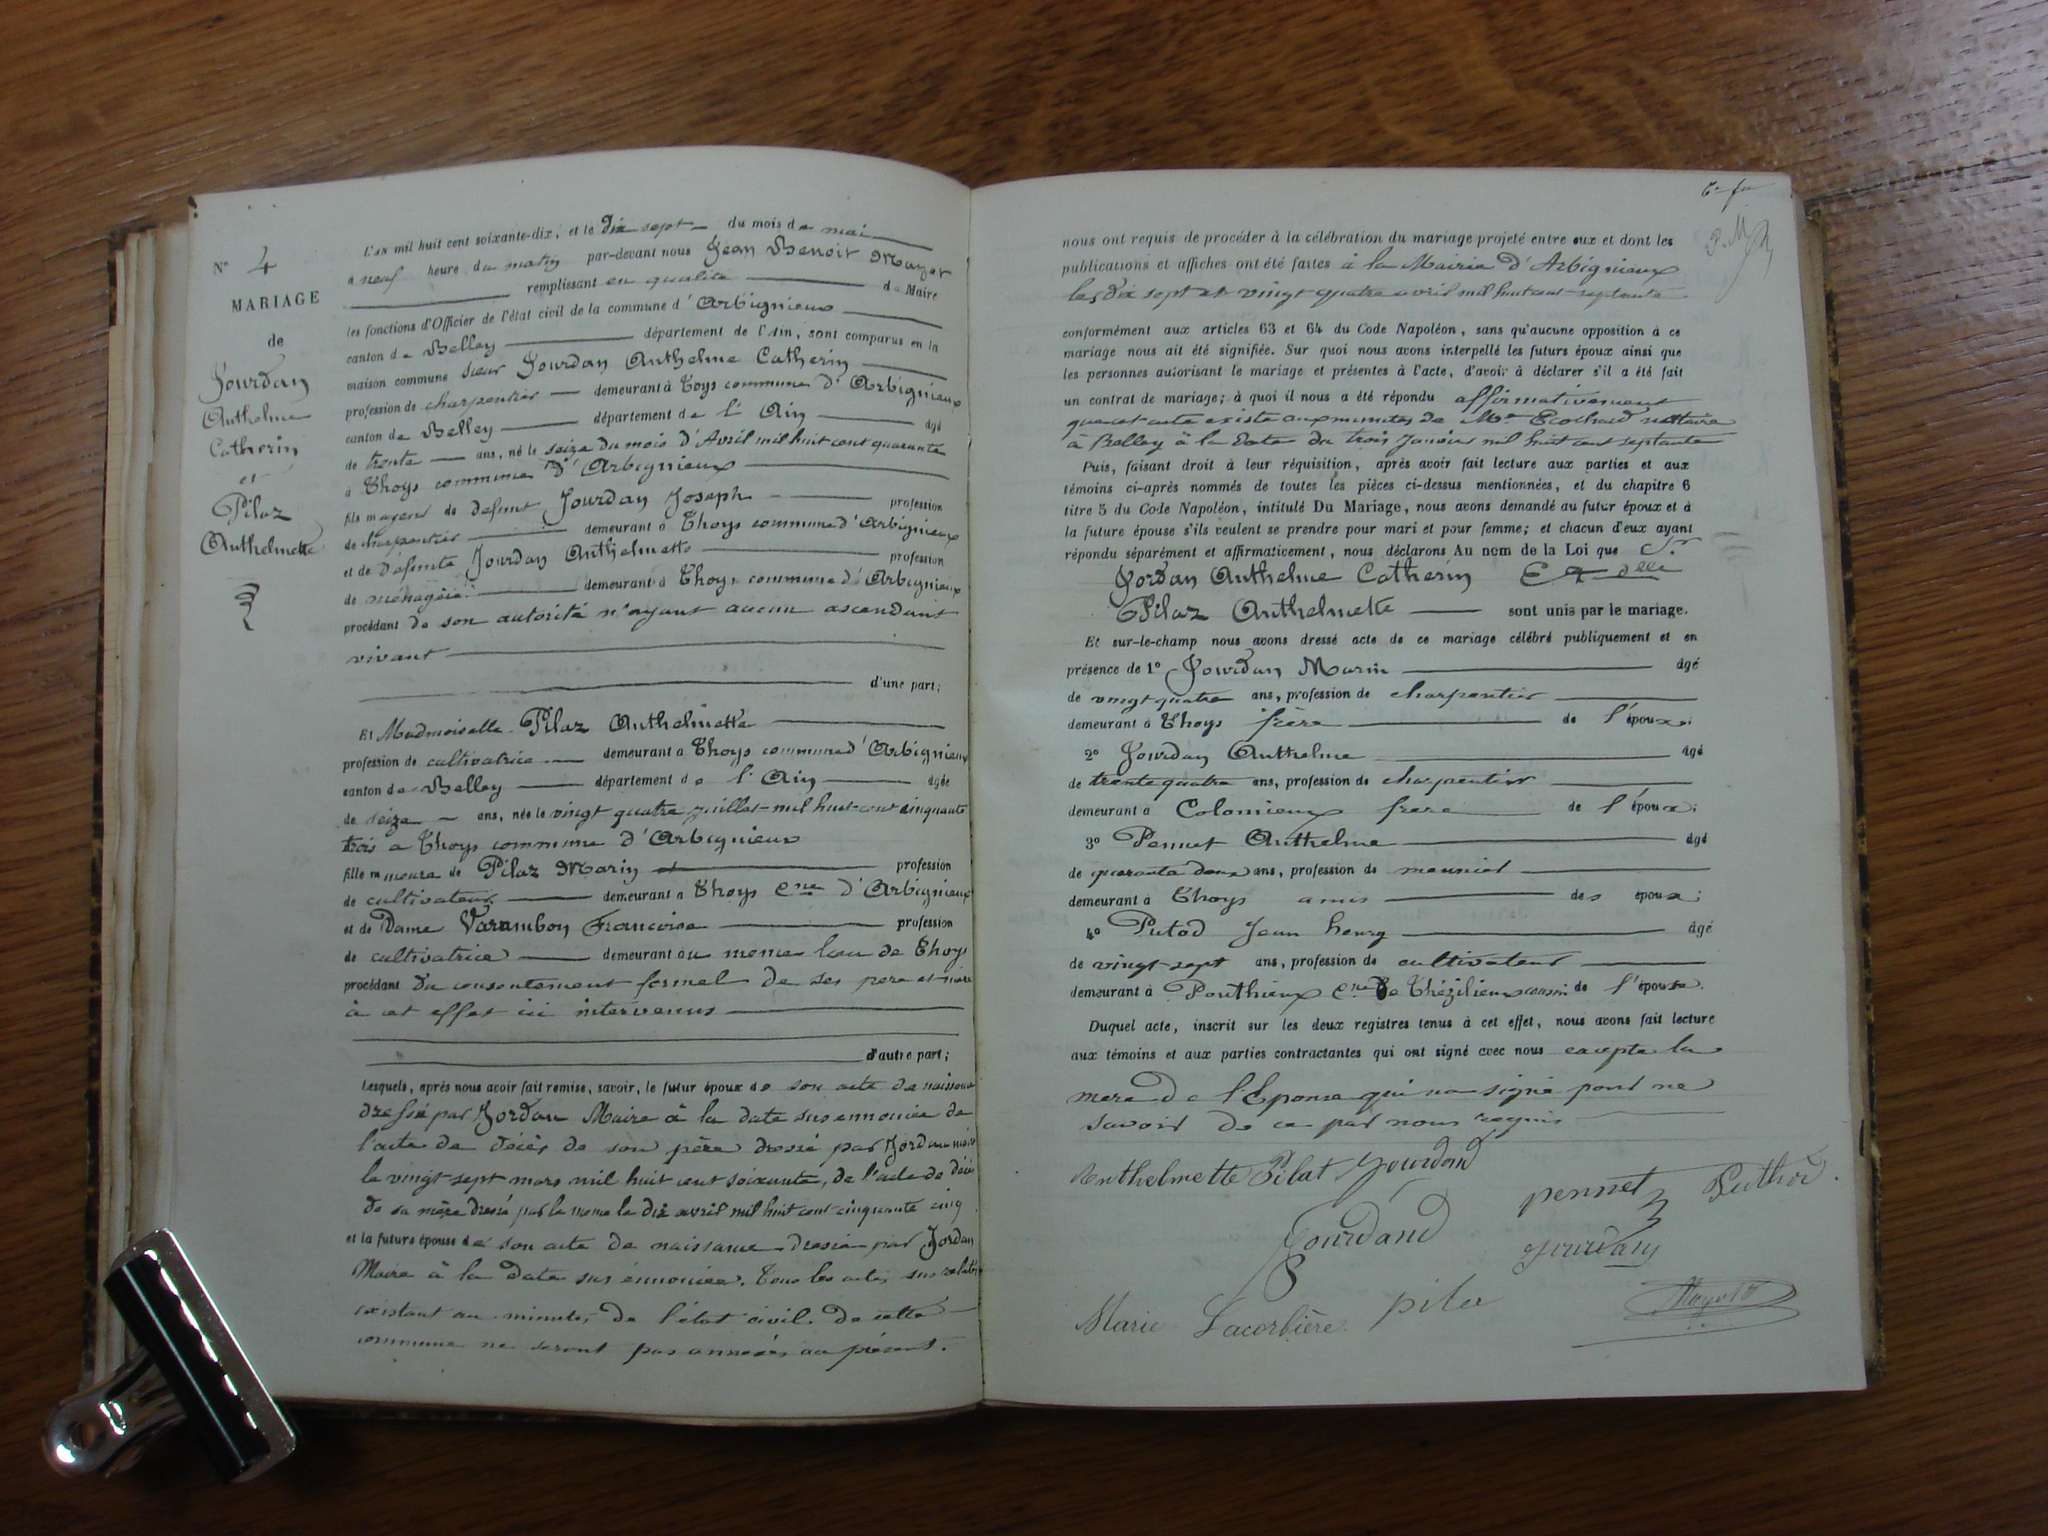 N° 4
MARIAGE
de
Jourdan
Anthelme
Catherin
et
Pilaz
Anthelmette
L'an mil huit cent soixante-dix, et le dix sept du mois de mai
à neuf heure du matin par-devant nous Jean Benoit Mayot
remplissant en qualité de Maire
les fonctions d'Officier de l'état civil de la commune d'Arbignieux
canton de Belley département de l'Ain, sont comparus en la
maison commune sieur Jourdan Anthelme Catherin
profession de charpentier demeurant à Toys commune d'Arbignieux
canton de Belley département de l'Ain âgé
de trente ans, né le seize du mois d'Avril mil huit cent quarante
à Thoys commune d'Arbignieux
fils mageur de defunt Jourdan Joseph profession
de charpentier demeurant à Thoys commune d'Arbignieux
et de défunte Jourdan Anthelmette profession
de ménagère demeurant à Thoys commune d'Arbignieux
procédant de son autorité n'ayant aucun ascendant
vivant
d'une part;
Et Madmoiselle Pilaz Anthelmette
profession de cultivatrice demeurant à Thoys commune d'Arbignieux
canton de Belley département de l'Ain âgée
de seize ans, née le vingt quatre juillet mil huit cent cinquante
trois a Thoys commune d'Arbignieux
fille mineure de Pilaz Marin profession
de cultivateur demeurant a Thoys cne d'Arbignieux
et de Dame Varambon Francoise profession
de cultivatrice demeurant au meme lieu de Thoys
procédant du consentement formel de ses pere et mère
à cet effet ici intervenus
d'autre part;
Lesquels, après nous avoir fait remise, savoir, le futur époux de son acte de naissance
dressé par Jordan Maire à la date sus ennoncée de
l'acte de décès de son père dressé par Jordan maire
le vingt sept mars mil huit cent soixante, de l'acte de décès
de sa mère dressé par le meme le dix avril mil huit cent cinquante cinq
et la future épouse de son acte de naissance dressé par Jordan
Maire à la date sus énnoncée. Tous les actes sus relatés
existant au minutes de l'état civil de cette
commune ne seront pas annexés au présent.
nous ont requis de procéder à la célébration du mariage projeté entre eux et dont les
publications et affiches ont été faites à la Mairie d'Arbignieux
les dix sept et vingt quatre avril mil huit cent septante
conformément aux articles 63 et 64 du Code Napoléon, sans qu'aucune opposition à ce
mariage nous ait été signifiée. Sur quoi nous avons interpellé les futurs époux ainsi que
les personnes autorisant le mariage et présentes à l'acte, d'avoir à déclarer s'il a été fait
un contrat de mariage; à quoi il nous a été répondu affirmativement
que cet acte existe aux minutes de Me nottaire
à Belley à la date du trois Janvier mil huit cent septante
Puis, faisant droit à leur réquisition, après avoir fait lecture aux parties et aux
témoins ci-après nommés de toutes les pièces ci-dessus mentionnées, et du chapitre 6
titre 5 du Code Napoléon, intitulé Du Mariage, nous avons demandé au futur époux et à
la future épouse s'ils veulent se prendre pour mari et pour femme; et chacun d'eux ayant
répondu séparément et affirmativement, nous déclarons Au nom de la Loi que Sr
Jordan Anthelme Catherin Et delle
Pilaz Anthelmette sont unis par le mariage.
Et sur-le-champ nous avons dressé acte de ce mariage célébré publiquement et en
présence de 1° Jourdan Marin âgé
de vingt quatre ans, profession de charpentier
demeurant à Thoys frère de l'époux;
2° Jourdan Anthelme âgé
de trente quatre ans, profession de charpentier
demeurant à Colomieux frere de l'époux;
3° Pennet Anthelme âgé
de quarante deux ans, profession de meunier
demeurant à Thoys amis des époux;
4° Putod Jean henry âgé
de vingt-sept ans, profession de cultivateur
demeurant à Ponthieux cne de Thézilieux cousin de l'épouse.
Duquel acte, inscrit sur les deux registres tenus à cet effet, nous avons fait lecture
aux témoins et aux parties contractantes qui ont signé avec nous excepté la
mere de l'Epouse qui na signé pour ne
savoir de ce par nous requis
Anthelmette Pilat Jourdand
pennet Puthod.
Jourdand
Jourdan
Marie Lacorbière pilaz
Mayot